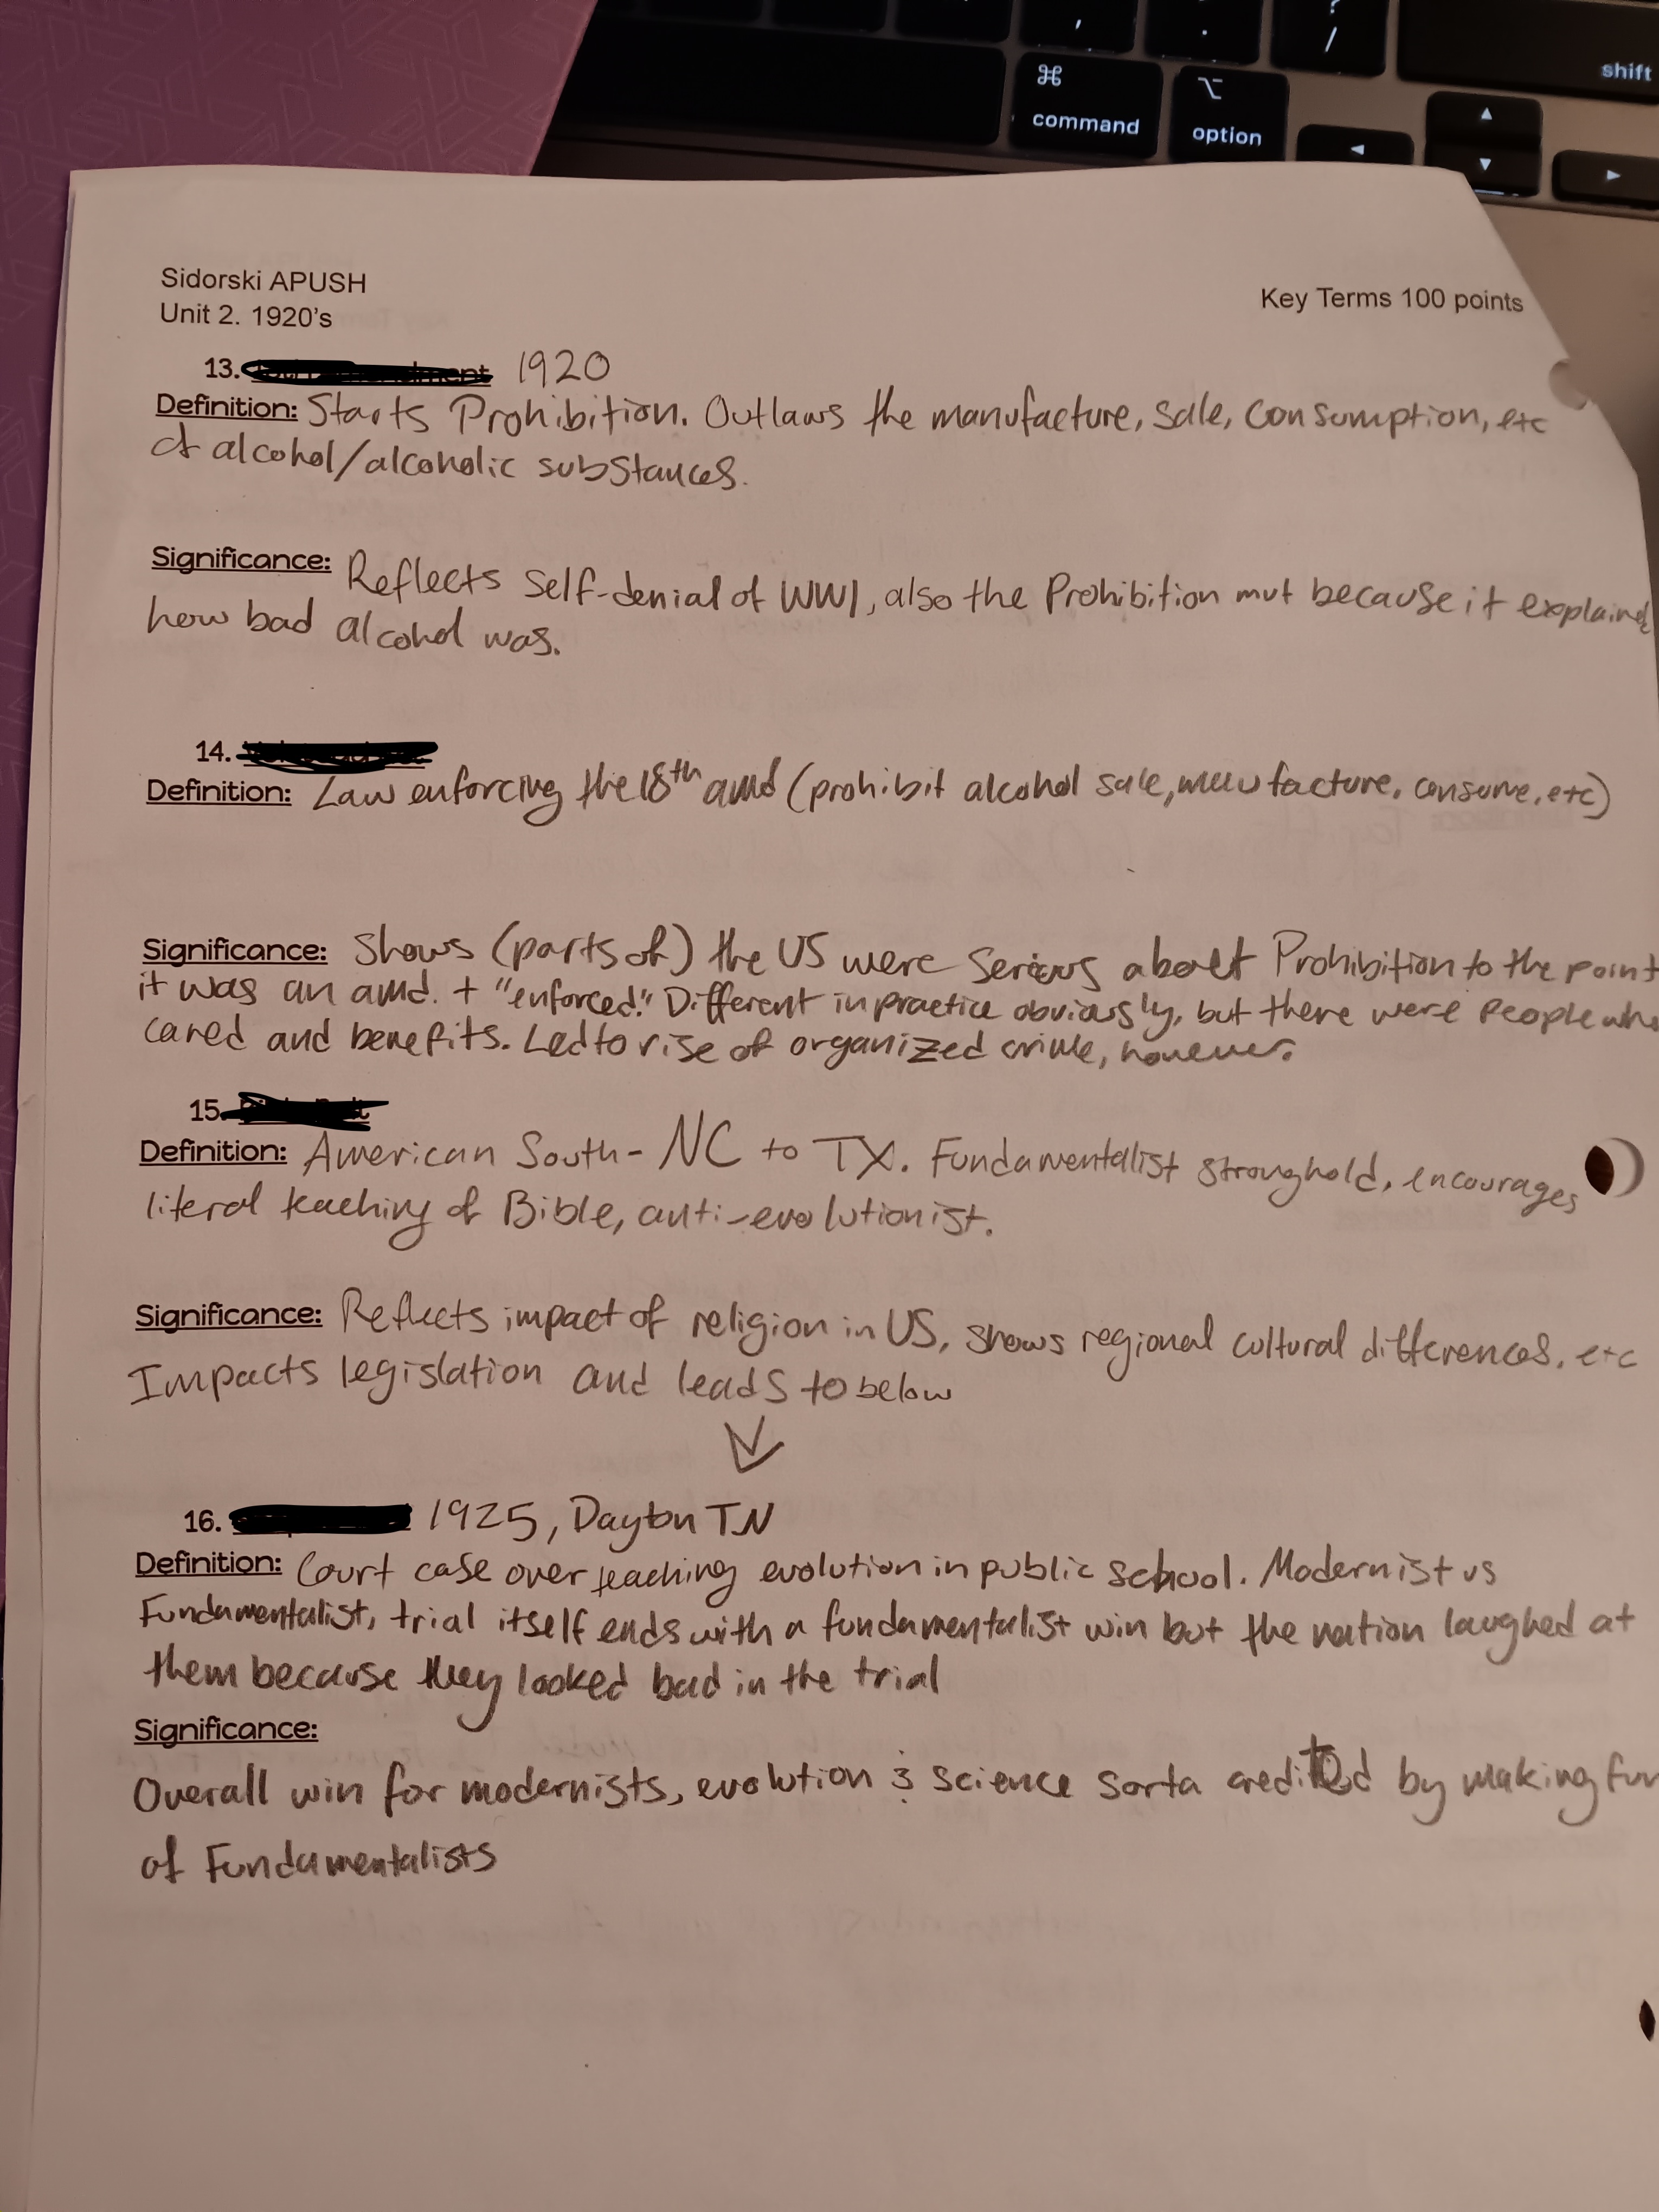 ,
.
?
/
⌘
command
⌥
option
shift
▲
◄
▼
►
Sidorski APUSH
Unit 2. 1920's
Key Terms 100 points
13. 1920
Definition: Starts Prohibition. Outlaws the manufacture, sale, consumption, etc
of alcohol/alcoholic substances.
Significance: Reflects self-denial of WW1, also the Prohibition mvt because it explained
how bad alcohol was.
14.
Definition: Law enforcing the 18th amd (prohibit alcohol sale, manufacture, consume, etc)
Significance: Shows (parts of) the US were serious about Prohibition to the point
it was an amd. + "enforced." Different in practice obviously, but there were people who
cared and benefits. Led to rise of organized crime, however.
15.
Definition: American South - NC to TX. Fundamentalist stronghold, encourages
literal teaching of Bible, anti-evolutionist.
Significance: Reflects impact of religion in US, shows regional cultural differences, etc
Impacts legislation and leads to below
16. 1925, Dayton TN
Definition: Court case over teaching evolution in public school. Modernist vs
Fundamentalist, trial itself ends with a fundamentalist win but the nation laughed at
them because they looked bad in the trial
Significance:
Overall win for modernists, evolution & science sorta credited by making fun
of Fundamentalists